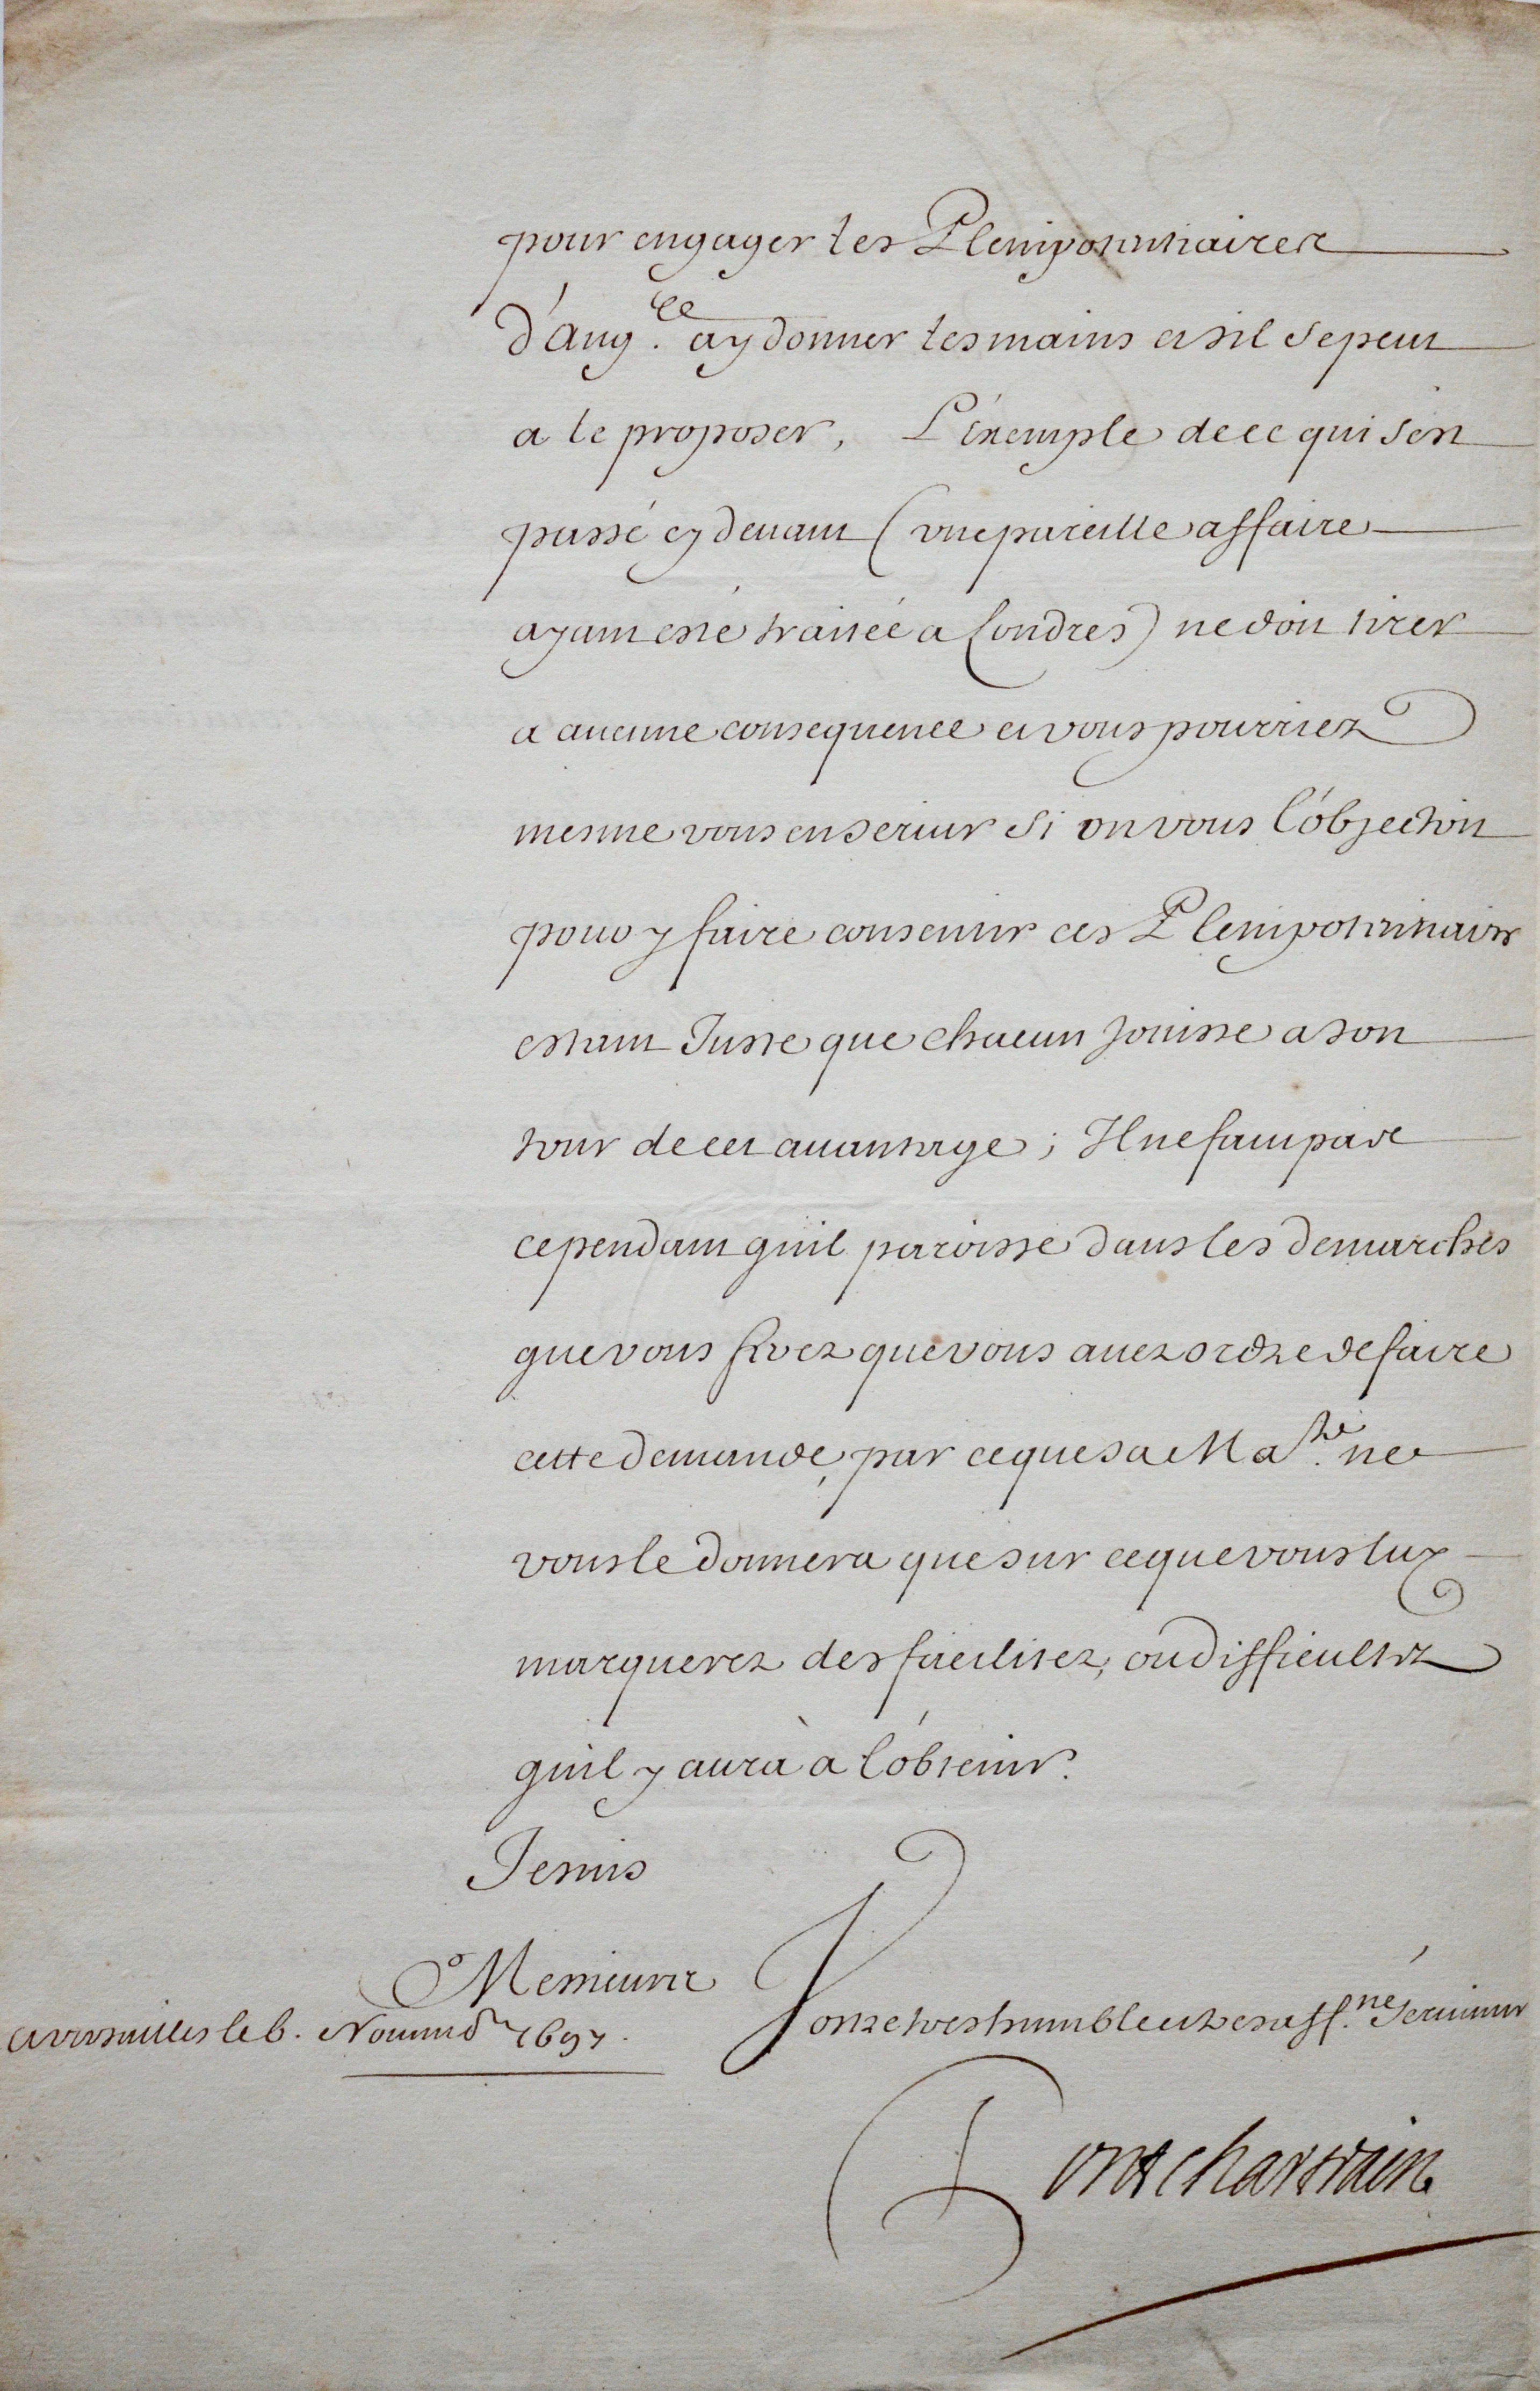 pour engager les Plenipotentiaires
d'Ang.re a y donner les mains et sil se peut
a le proposer, L'éxemple de ce qui s'est
passé cy devant (une pareille affaire
ayant esté traitée a Londres) ne doit tirer
a aucune consequence et vous pourriez
mesme vous en servir si on vous l'objectoit
pour y faire consentir ces Plenipotentiaires
estant Juste que chacun jouisse a son
tour de cet auantage; Il ne faut pas
cependant quil paroisse dans les demarches
que vous ferez que vous auez ordre de faire
cette demande, par ce que sa Ma.té ne
vous le donnera que sur ce que vous luy
marquerez des facilitez, ou difficultez
quil y aura à l'obtenir.
Je suis
Messieurs
Vostre tres humble et tres aff.né seruiteur
a versailles le 6. Nouemb. 1697.
Pontchartrain